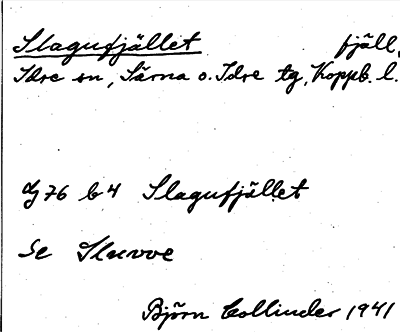 Slagufjället fjäll
Idre sn, Särna o. Idre tg, Koppb. l.
dg 76 b 4 Slagufjället
Se Sluvve
Björn Collinder 1941